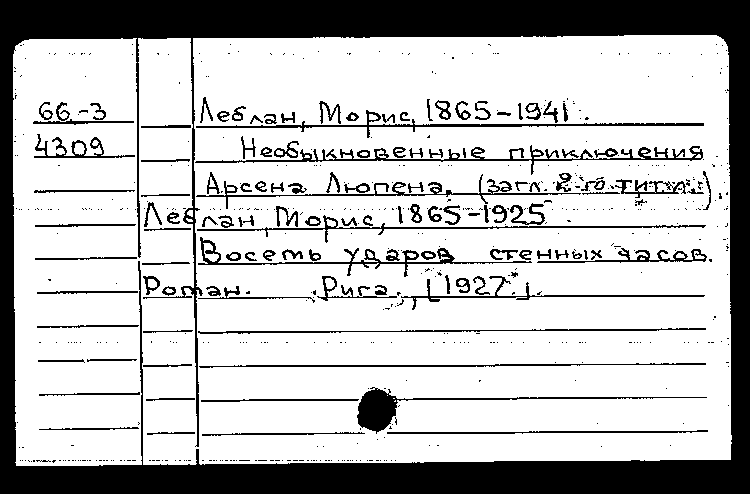 66-3 Леблан, Морис, 1865-1941.
4309 Необыкновенные приключения
Арсена Люпена. (загл. 2-го титл.).
Леблан, Морис, 1865-1925.
Восемь ударов стенных часов.
Роман. Рига, [1927].